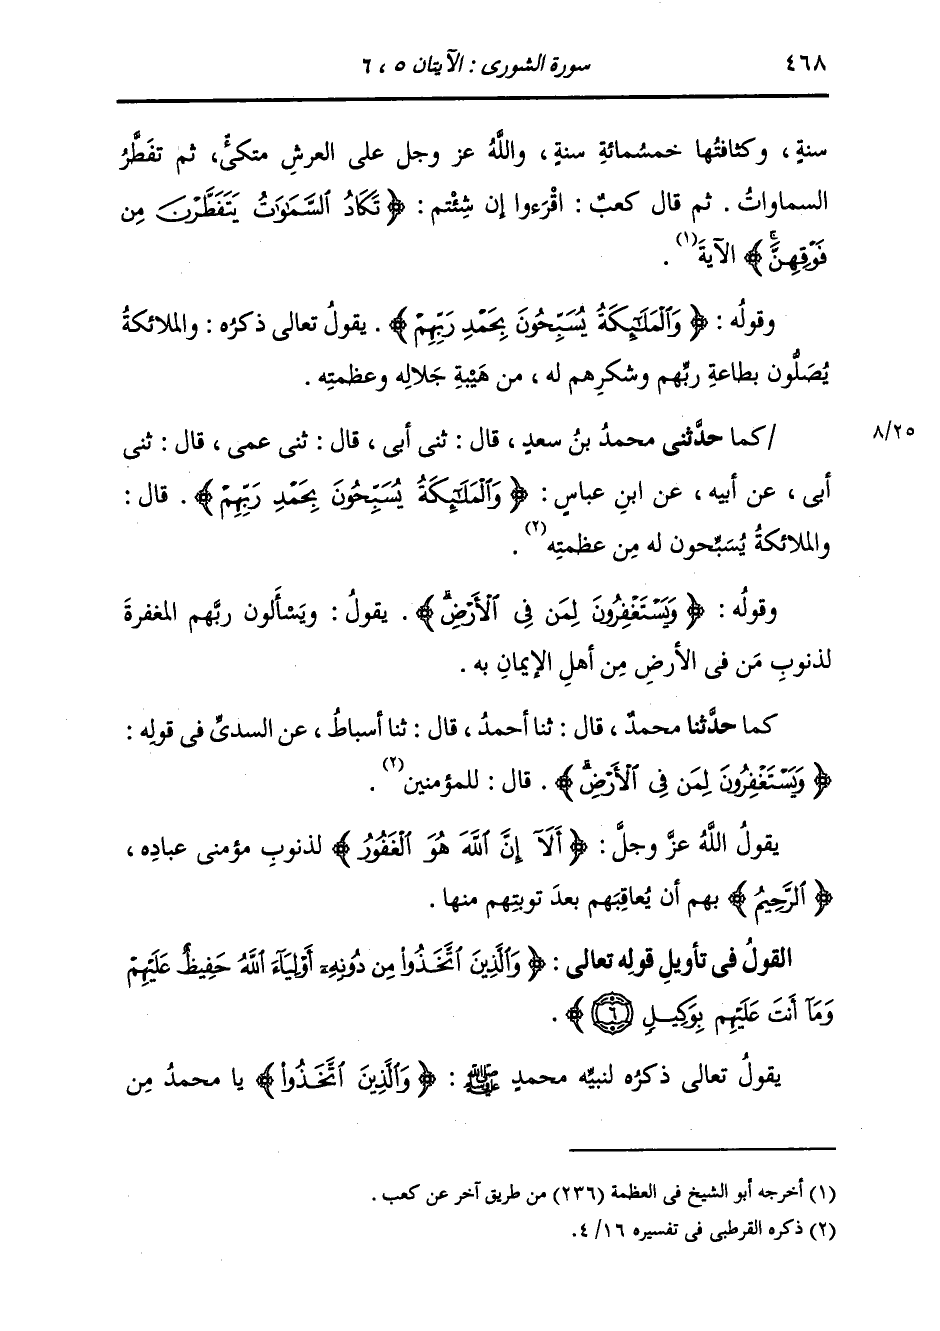 ٤٦٨ سورة الشورى : الآيتان ٥ ، ٦
سنةٍ ، وكثافتُها خمسُمائةِ سنةٍ ، واللَّهُ عز وجل على العرشِ متكئٌ، ثم تفَطَّرُ
السماواتُ . ثم قال كعبٌ : اقْرَءوا إن شِئْتم : ﴿ تَكَادُ ٱلسَّمَٰوَٰتُ يَتَفَطَّرْنَ مِن
فَوْقِهِنَّۚ ﴾ الآيةَ(١) .
وقولُه : ﴿ وَٱلْمَلَٰٓئِكَةُ يُسَبِّحُونَ بِحَمْدِ رَبِّهِمْ ﴾ . يقولُ تعالى ذكرُه : والملائكةُ
يُصَلُّون بطاعةِ ربِّهم وشكرِهم له ، من هَيْبةِ جَلالِه وعظمتِه .
٨/٢٥ /كما حدَّثنى محمدُ بنُ سعدٍ ، قال : ثنى أبى ، قال : ثنى عمى ، قال : ثنى
أبى ، عن أبيه ، عن ابنِ عباسٍ : ﴿ وَٱلْمَلَٰٓئِكَةُ يُسَبِّحُونَ بِحَمْدِ رَبِّهِمْ ﴾ . قال :
والملائكةُ يُسَبِّحون له مِن عظمتِه(٢) .
وقولُه : ﴿ وَيَسْتَغْفِرُونَ لِمَن فِى ٱلْأَرْضِۗ ﴾ . يقولُ : ويَسْألون ربَّهم المغفرةَ
لذنوبِ مَن فى الأرضِ مِن أهلِ الإيمانِ به .
كما حدَّثنا محمدٌ ، قال : ثنا أحمدُ ، قال : ثنا أسباطُ ، عن السدىِّ فى قولِه :
﴿ وَيَسْتَغْفِرُونَ لِمَن فِى ٱلْأَرْضِۗ ﴾ . قال : للمؤمنين(٢) .
يقولُ اللَّهُ عزَّ وجلَّ : ﴿ أَلَآ إِنَّ ٱللَّهَ هُوَ ٱلْغَفُورُ ﴾ لذنوبِ مؤمنى عبادِه ،
﴿ ٱلرَّحِيمُ ﴾ بهم أن يُعاقِبَهم بعدَ توبتِهم منها .
القولُ فى تأويلِ قولِه تعالى : ﴿ وَٱلَّذِينَ ٱتَّخَذُوا۟ مِن دُونِهِۦٓ أَوْلِيَآءَ ٱللَّهُ حَفِيظٌ عَلَيْهِمْ
وَمَآ أَنتَ عَلَيْهِم بِوَكِيلٍ ٦ ﴾ .
يقولُ تعالى ذكرُه لنبيِّه محمدٍ ﷺ : ﴿ وَٱلَّذِينَ ٱتَّخَذُوا۟ ﴾ يا محمدُ مِن
(١) أخرجه أبو الشيخ فى العظمة (٢٣٦) من طريق آخر عن كعب .
(٢) ذكره القرطبى فى تفسيره ١٦/ ٤.